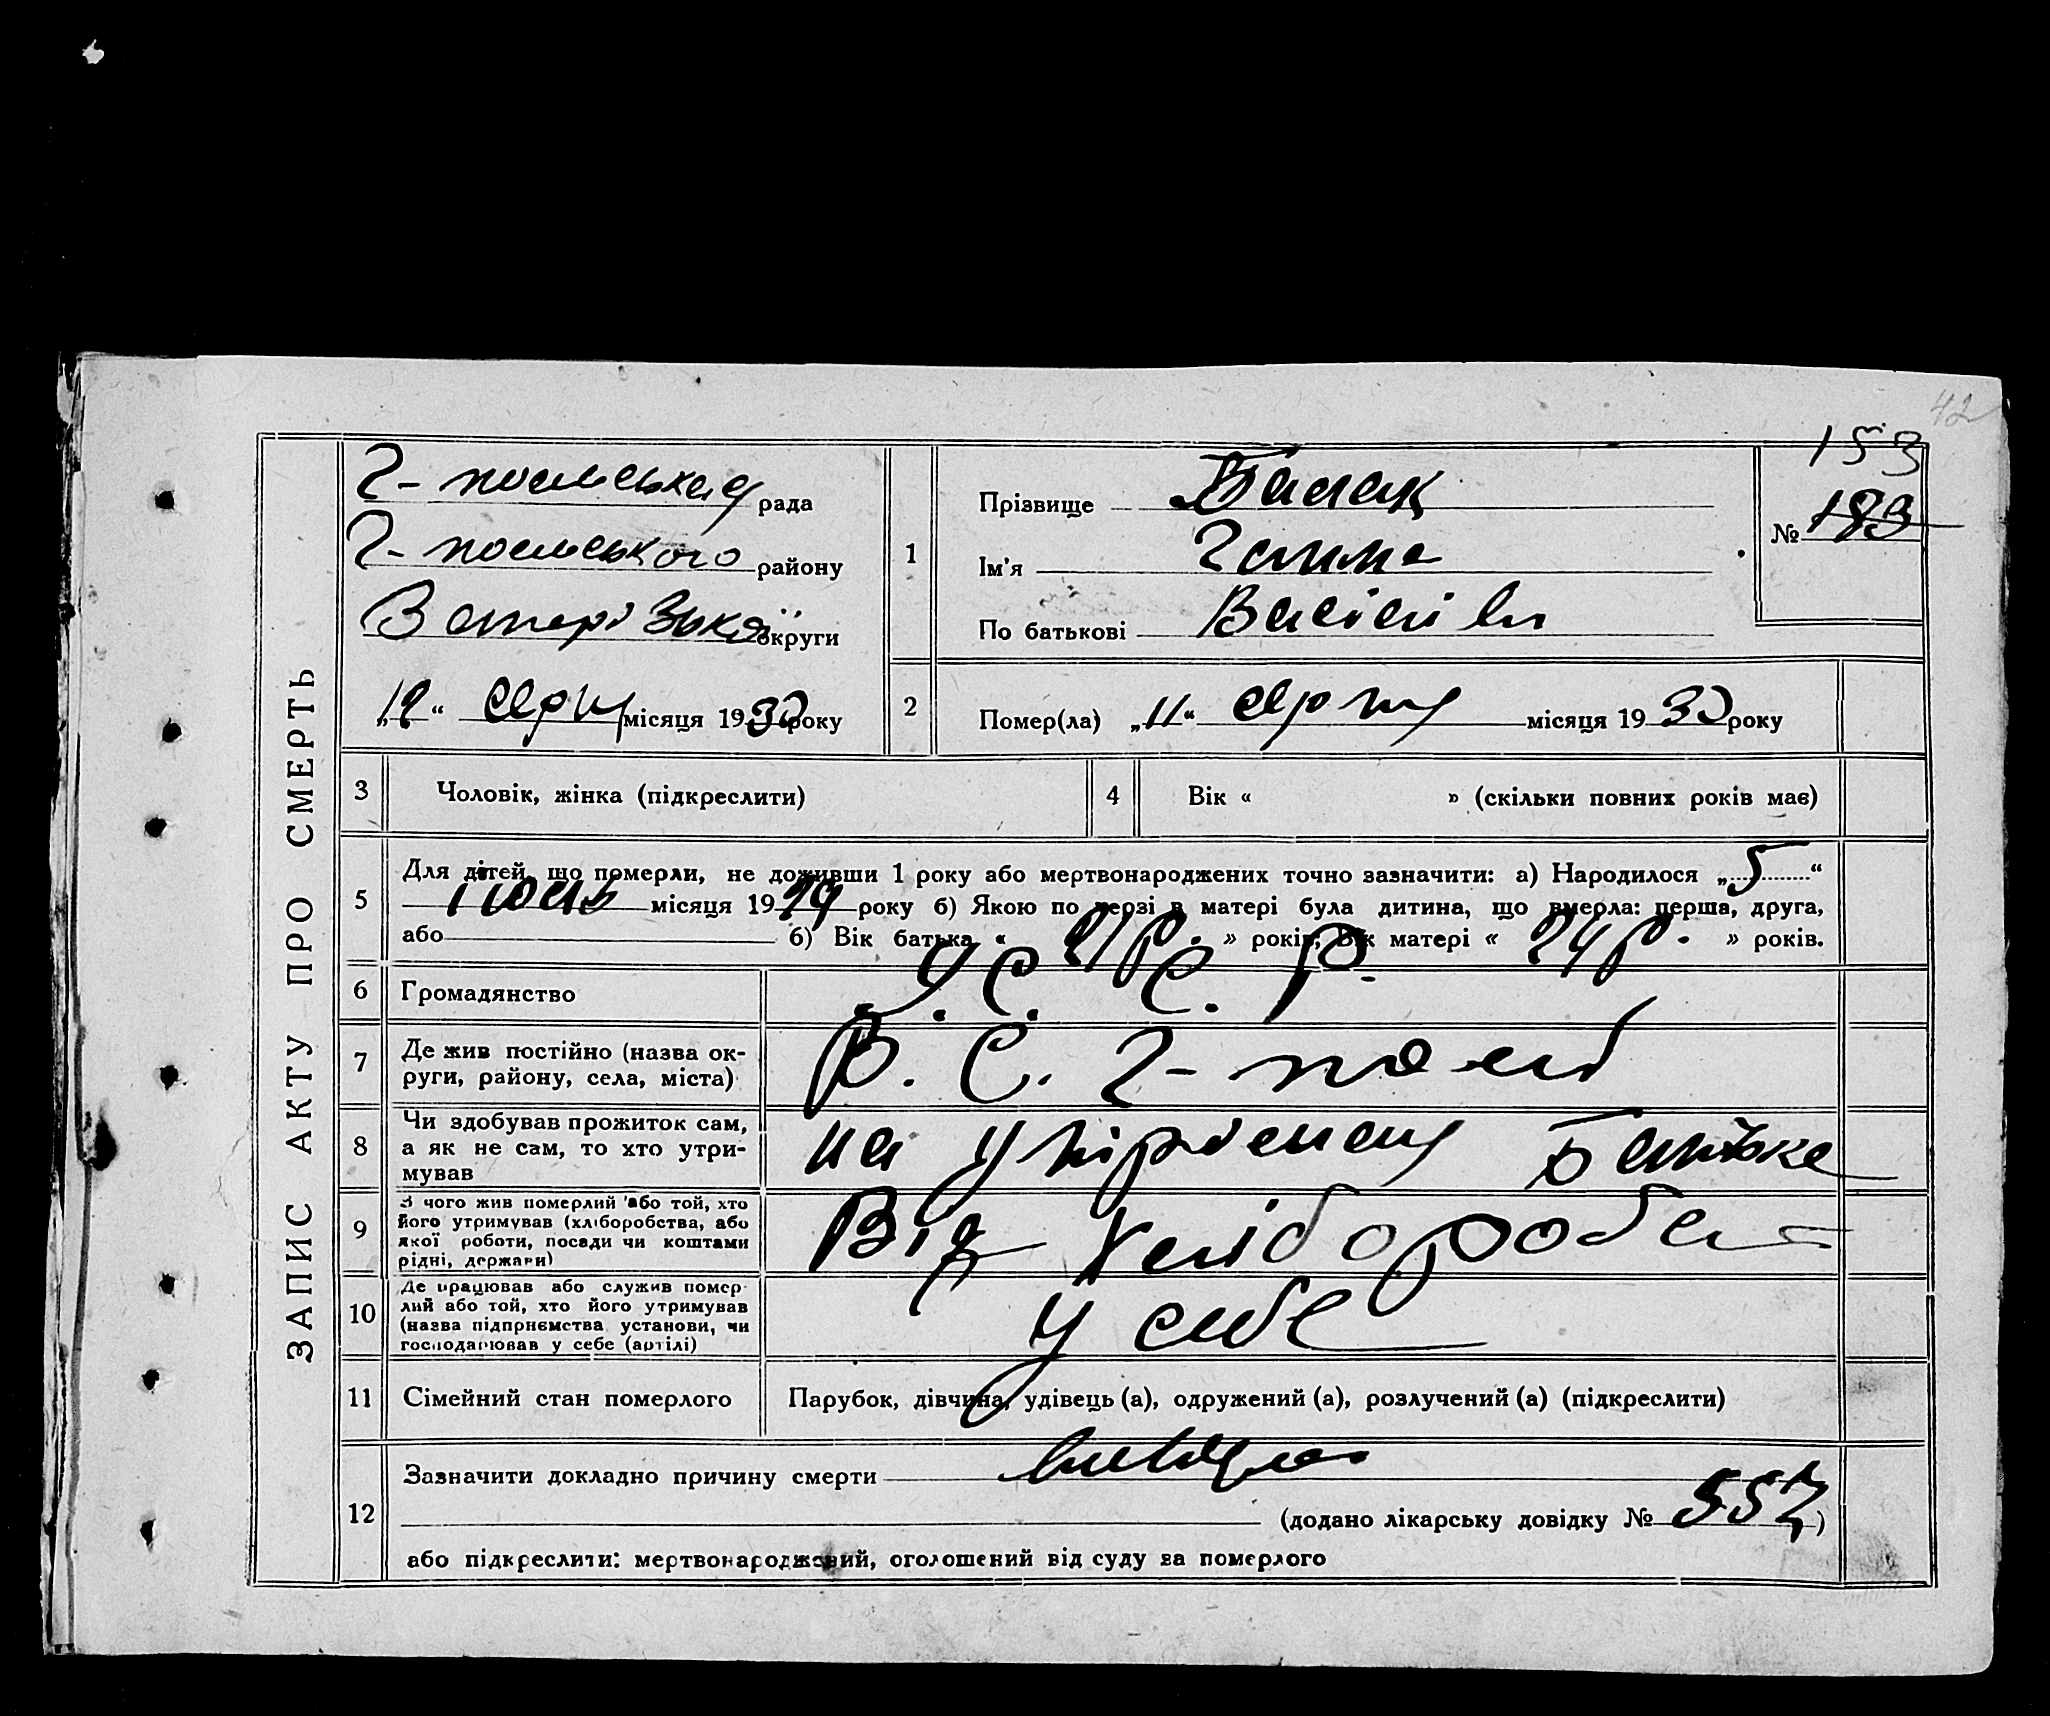 42
153
ЗАПИС АКТУ ПРО СМЕРТЬ
Г-польська рада
Г-польського району
Запорізької округи
„12“ серпня місяця 1930 року
1
Прізвище Балак
Ім'я Ганна
По батькові
№ 183
2
Помер(ла) „11“ серпня місяця 1930 року
3
Чоловік, жінка (підкреслити)
4
Вік « » (скільки повних років має)
5
Для дітей, що померли, не доживши 1 року або мертвонароджених точно зазначити: а) Народилося „5“
місяця 1929 року б) Якою по черзі в матері була дитина, що вмерла: перша, друга,
або б) Вік батька « р. » років, Вік матері « 24 р. » років.
6
Громадянство
У.С.С.Р.
7
Де жив постійно (назва ок-
руги, району, села, міста)
В. С. Г-поль
8
Чи здобував прожиток сам,
а як не сам, то хто утри-
мував
на Батька
9
З чого жив померлий або той, хто
його утримував (хліборобства, або
якої роботи, посади чи коштами
рідні, держави)
Від хлібороб
10
Де працював або служив помер-
лий або той, хто його утримував
(назва підприємства установи, чи
господарював у себе (артілі)
у себе
11
Сімейний стан померлого
Парубок, дівчина, удівець (а), одружений (а), розлучений (а) (підкреслити)
12
Зазначити докладно причину смерти
(додано лікарську довідку № 557)
або підкреслити: мертвонароджений, оголошений від суду за померлого